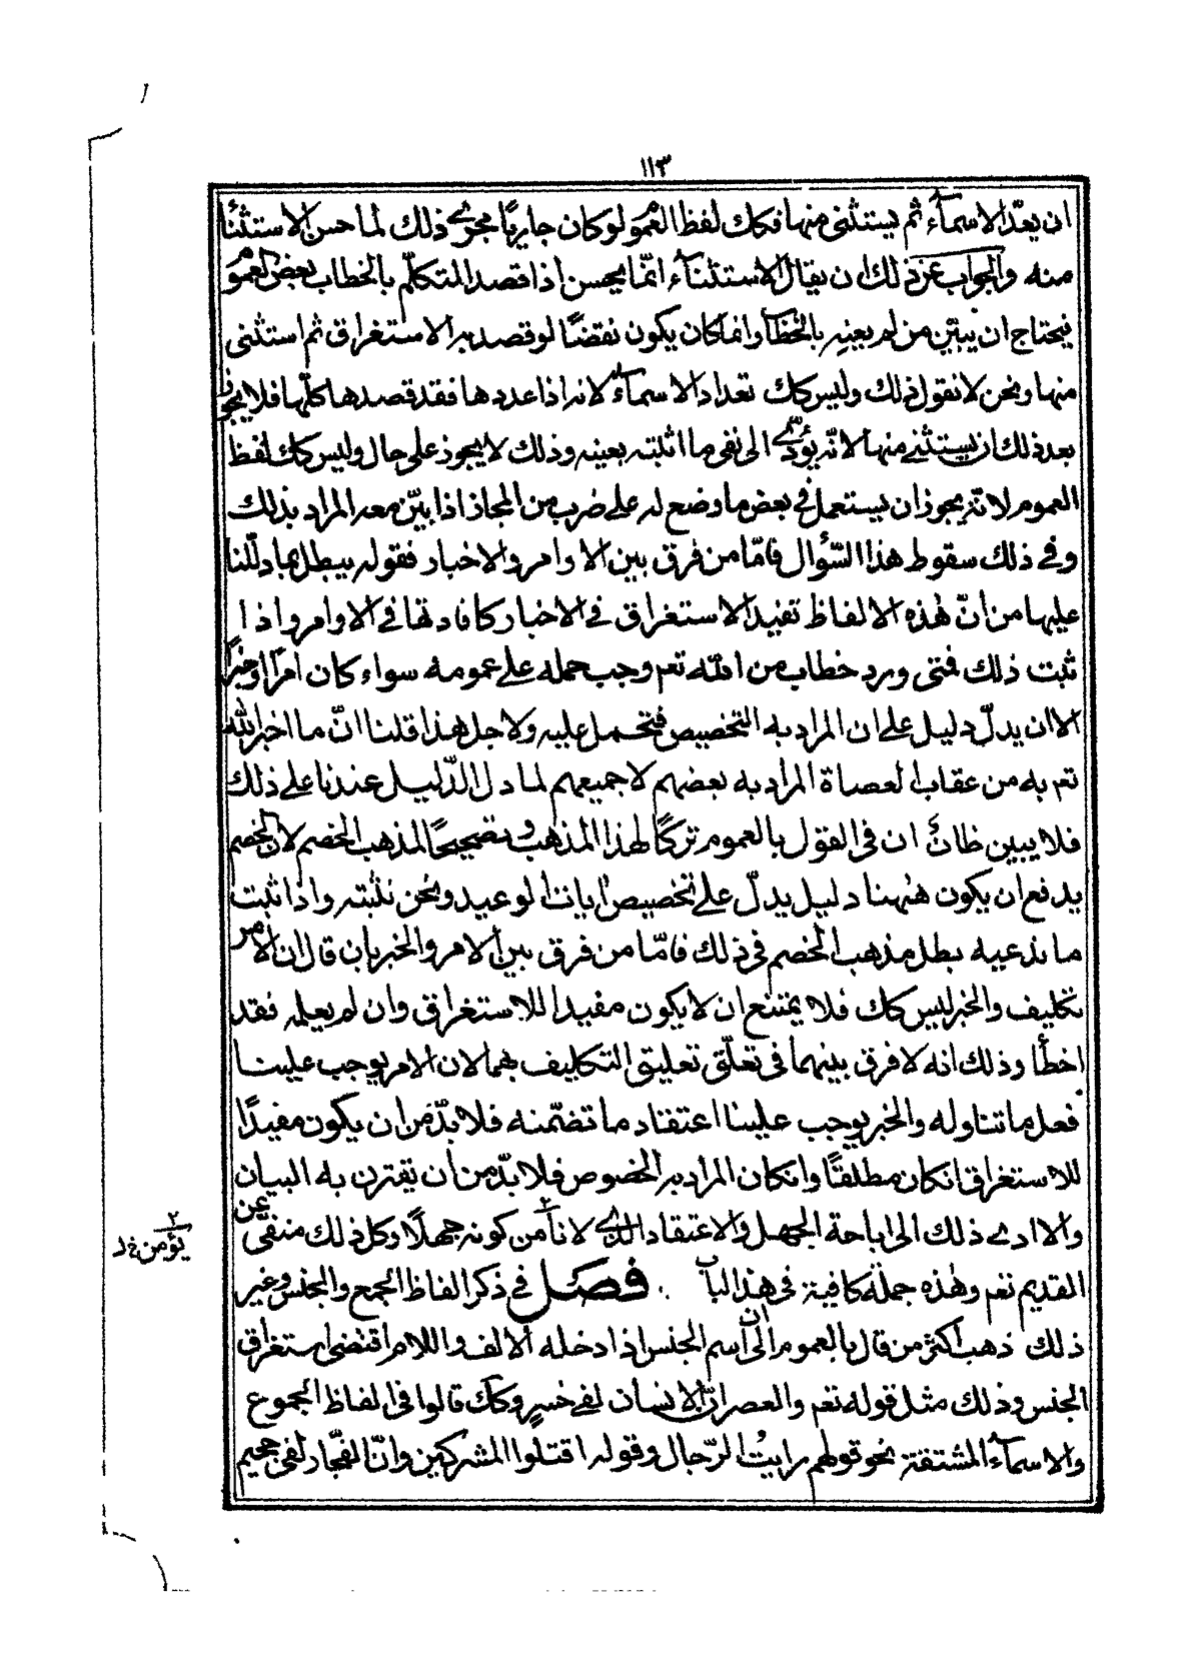 ١١٣
ان يعدّ الاسمآء ثم يستثنى منها فكك لفظ العموم لو كان جاريًا مجرى ذلك لما حسن الاستثنأ
منه والجواب عن ذلك ان يقال الاستثنآء انّما يحسن اذا قصد المتكلّم بالخطاب بعض العموم
فيحتاج ان يبيّن من لم يعينه بالخطأب وانما كان يكون نقضًا لو قصد به الاستغراق ثم استثنى
منها ونحن لا نقول ذلك وليس كك تعداد الاسمآء لانه اذا عددها فقد قصدها كلّها فلا يجوز
بعد ذلك ان يستثنى منها لانّه يؤدّى الى نفى ما اثبته بعينه وذلك لا يجوز على حال وليس كك لفظ
العموم لانّه يجوز ان يستعمل فى بعض ما وضع له على ضرب من المجاز اذا بيّن معه المراد بذلك
وفى ذلك سقوط هذا السّؤال فامّا من فرق بين الاوامر والاخبار فقوله يبطل بما دلّلنا
عليها من انّ هذه الالفاظ تفيد الاستغراق فى الاخبار كافادتها فى الاوامر واذا
ثبت ذلك فمتى ورد خطاب من الله تعم وجب حمله على عمومه سواء كان امرًا او خبرًا
الا ان يدلّ دليل على ان المراد به التخصيص فتحمل عليه ولاجل هذا قلنا انّ ما اخبر الله
تعم به من عقاب العصاة المراد به بعضهم لا جميعهم لما دل الدّليل عندنا على ذلك
فلا يبين ظانّ ان فى القول بالعموم تركًا لهذا المذهب وتصحيحًا لمذهب الخصم لان الخصم
يدفع ان يكون ههنا دليل يدلّ على تخصيص ايات الوعيد ونحن نثبته واذا ثبت
ما ندعيه بطل مذهب الخصم فى ذلك فامّا من فرق بين الامر والخبر بان قال ان الامر
تكليف والخبر ليس كك فلا يمتنع ان لا يكون مفيدا للاستغراق وان لم يعلمه فقد
اخطأ وذلك انه لا فرق بينهما فى تعلّق تعليق التكليف بهما لان الامر يوجب علينا
فعل ما تناوله والخبر يوجب علينا اعتقاد ما تضمّنه فلا بدّ من ان يكون مفيدًا
للاستغراق انكان مطلقًا وانكان المراد به الخصوص فلا بدّ من ان يقترن به البيان
والا ادى ذلك الى اباحة الجهل والاعتقاد الذى لا نأمن كونه جهلًا وكل ذلك منفى عن
٢ يؤمن خ ل
القديم تعم وهذه جملة كافية فى هذا الباب . فصل فى ذكر الفاظ الجمع والجنس وغير
ذلك ذهب اكثر من قال بالعموم الى ان اسم الجنس اذا دخله الالف واللام اقتضى استغراق
الجنس وذلك مثل قوله تعم والعصر ان الانسان لفى خسر وكك قالوا فى الفاظ الجموع
والاسمآء المشتقة نحو قولهم رايت الرّجال وقوله اقتلوا المشركين وانّ الفجّار لفى جحيم